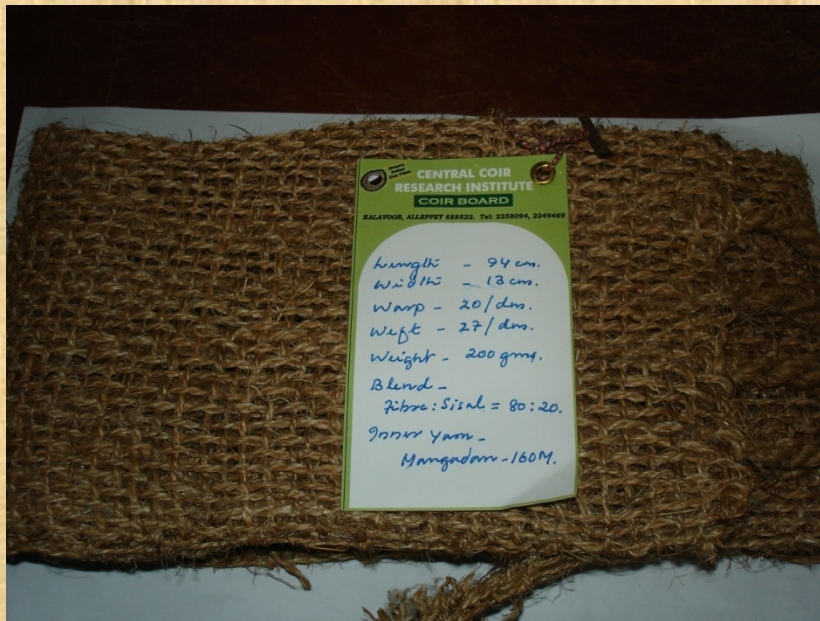 CENTRAL COIR
RESEARCH INSTITUTE
COIR BOARD
KALAVOOR, ALLEPPEY 688522. Tel: 2258094, 2249469
Length - 94 cm.
Width - 13 cm.
Warp - 20/dm.
Weft - 27/dm.
Weight - 200 gms.
Blend -
Fibre : Sisal = 80 : 20.
Inner Yarn -
Mangadan - 160M.